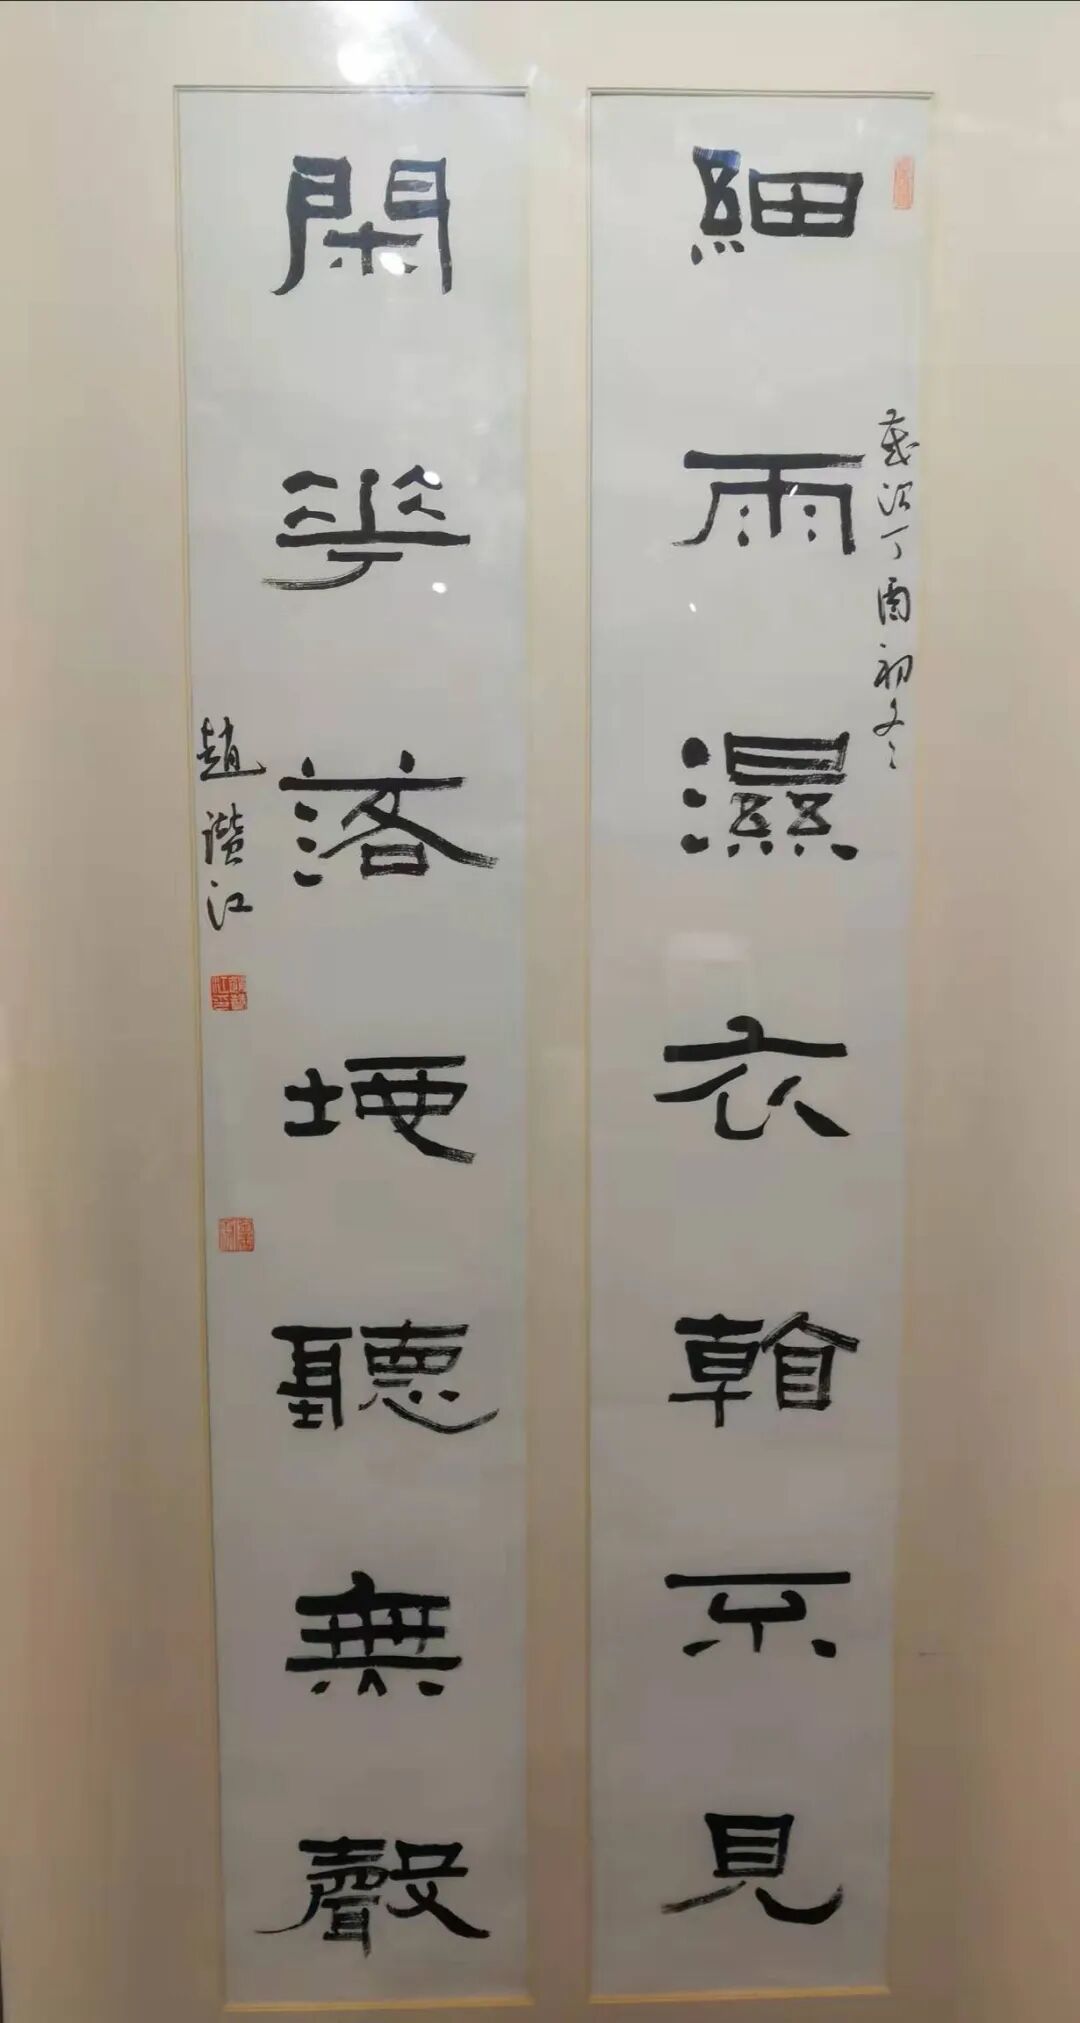 細雨濕衣看不見
歲次丁酉初冬
閑華落地聽無聲
趙 江